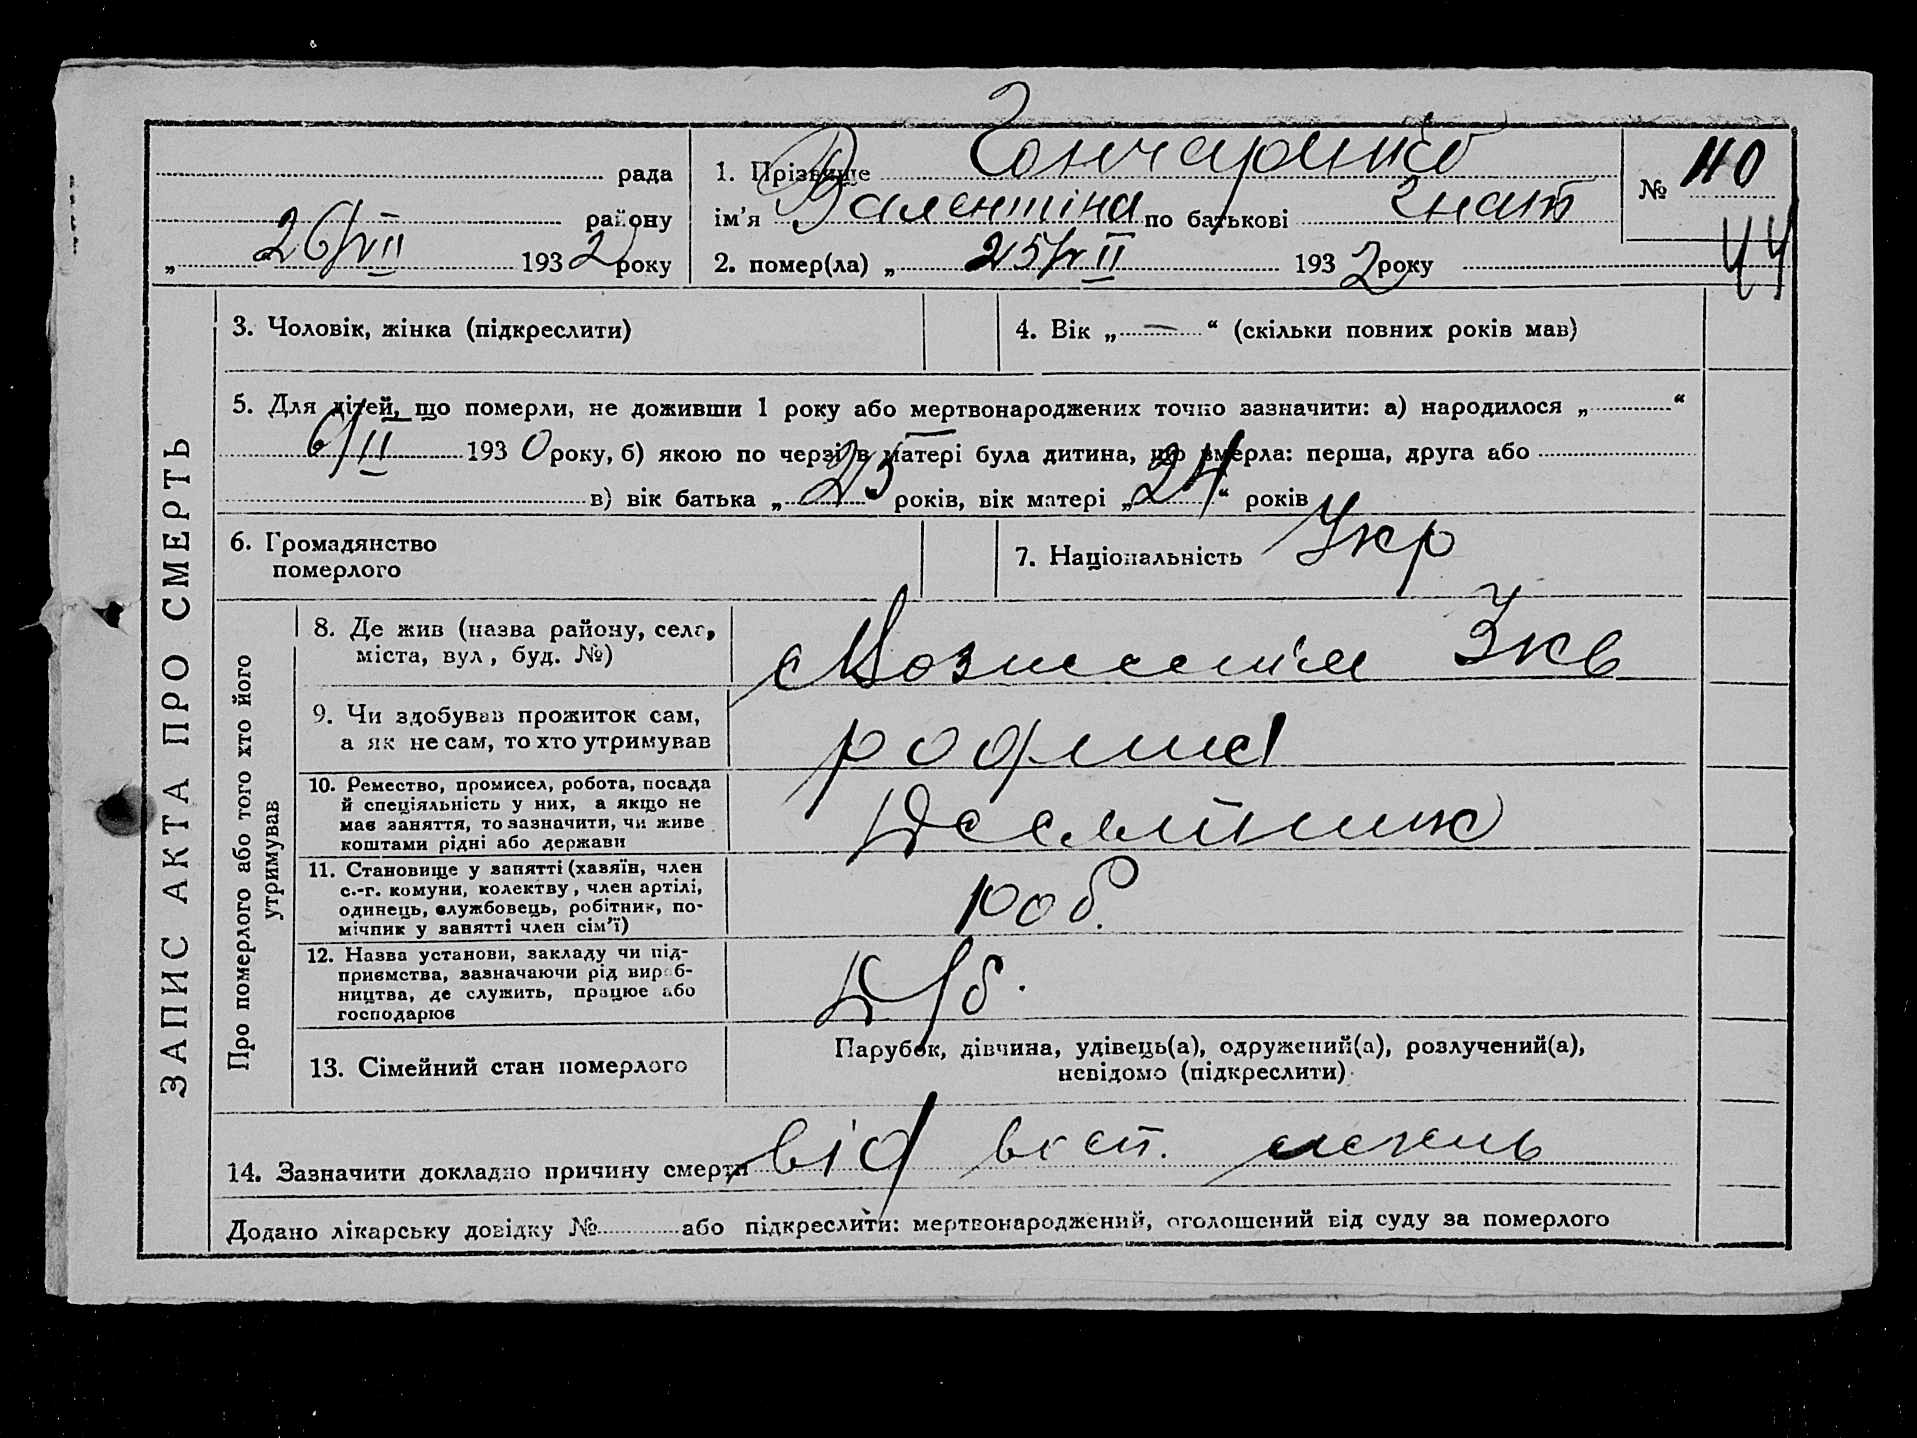 рада
1. Прізвище Гончаренко
№ 110
району
ім'я Валентіна по батькові Гнат
44
„ 26/VII 1932 року
2. помер(ла) „ 25/VII 1932 року
ЗАПИС АКТА ПРО СМЕРТЬ
3. Чоловік, жінка (підкреслити)
4. Вік „ — “ (скільки повних років мав)
5. Для дітей, що померли, не доживши 1 року або мертвонароджених точно зазначити: а) народилося „ “
6/II 1930 року, б) якою по черзі в матері була дитина, що вмерла: перша, друга або
в) вік батька „ 25 років, вік матері „ 24 “ років
6. Громадянство
померлого
7. Національність Укр
Про померлого або того хто його
утримував
8. Де жив (назва району, села,
міста, вул, буд. №)
9. Чи здобував прожиток сам,
а як не сам, то хто утримував
родина
10. Ремество, промисел, робота, посада
й спеціяльність у них, а якщо не
мав заняття, то зазначити, чи живе
коштами рідні або держави
11. Становище у занятті (хазяїн, член
с.-г. комуни, колектву, член артілі,
одинець, службовець, робітник, по-
мічник у занятті член сім'ї)
роб.
12. Назва установи, закладу чи під-
приємства, зазначаючи рід вироб-
ництва, де служить, працює або
господарює
13. Сімейний стан померлого
Парубок, дівчина, удівець(а), одружений(а), розлучений(а),
невідомо (підкреслити)
14. Зазначити докладно причину смерти від
Додано лікарську довідку № або підкреслити: мертвонароджений, оголошений від суду за померлого